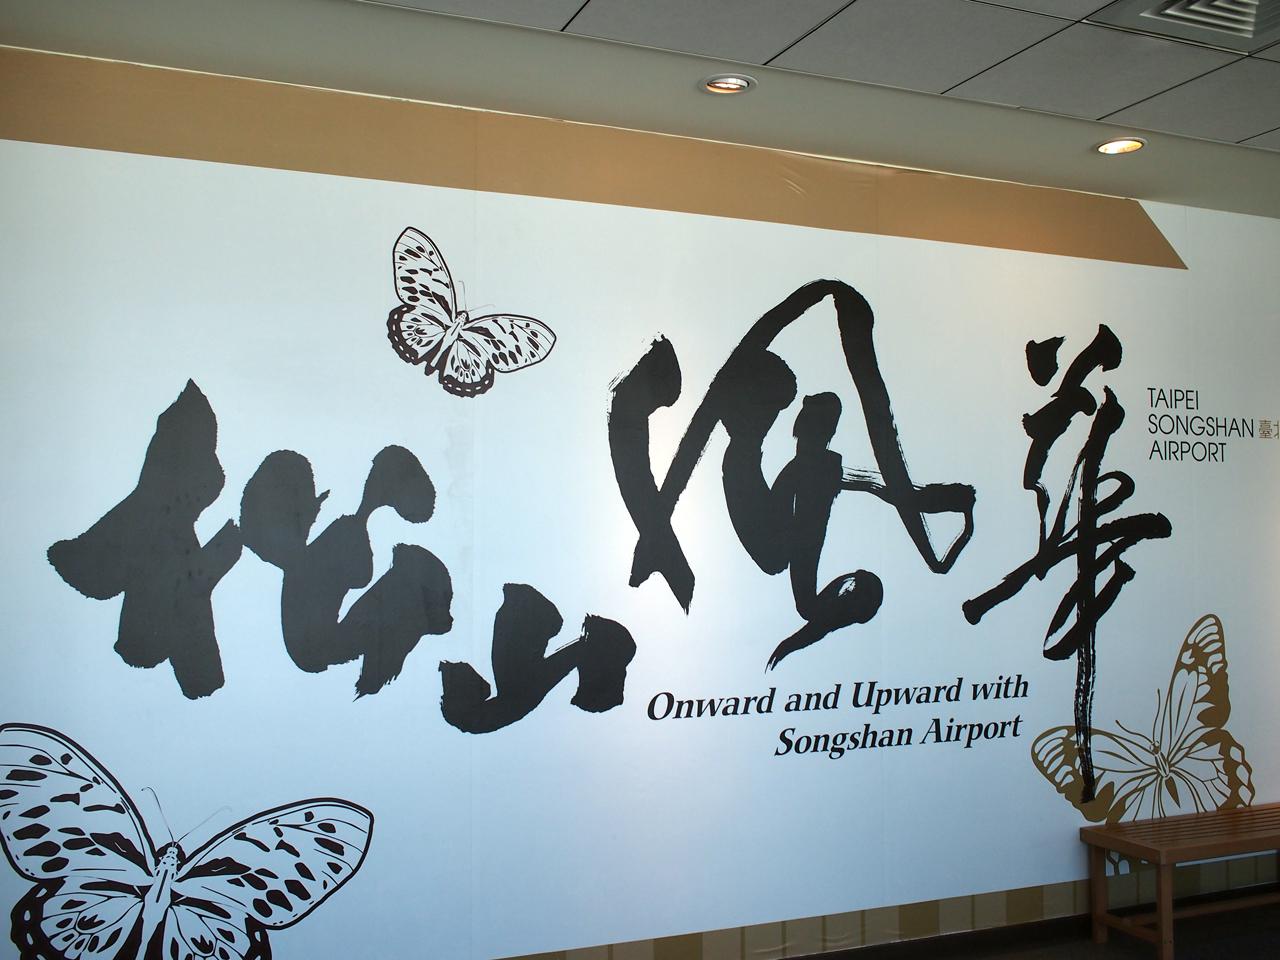 松山風華
TAIPEI
SONGSHAN 臺北
AIRPORT
Onward and Upward with
Songshan Airport